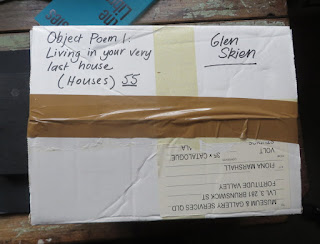 Object Poem 1.
Living in your very
last house
(Houses) 55
Glen
Skien
MUSEUM & GALLERY SERVICES QLD
LVL 3, 281 BRUNSWICK ST
FORTITUDE VALLEY
FIONA MARSHALL
VOLT
CATALOGUE